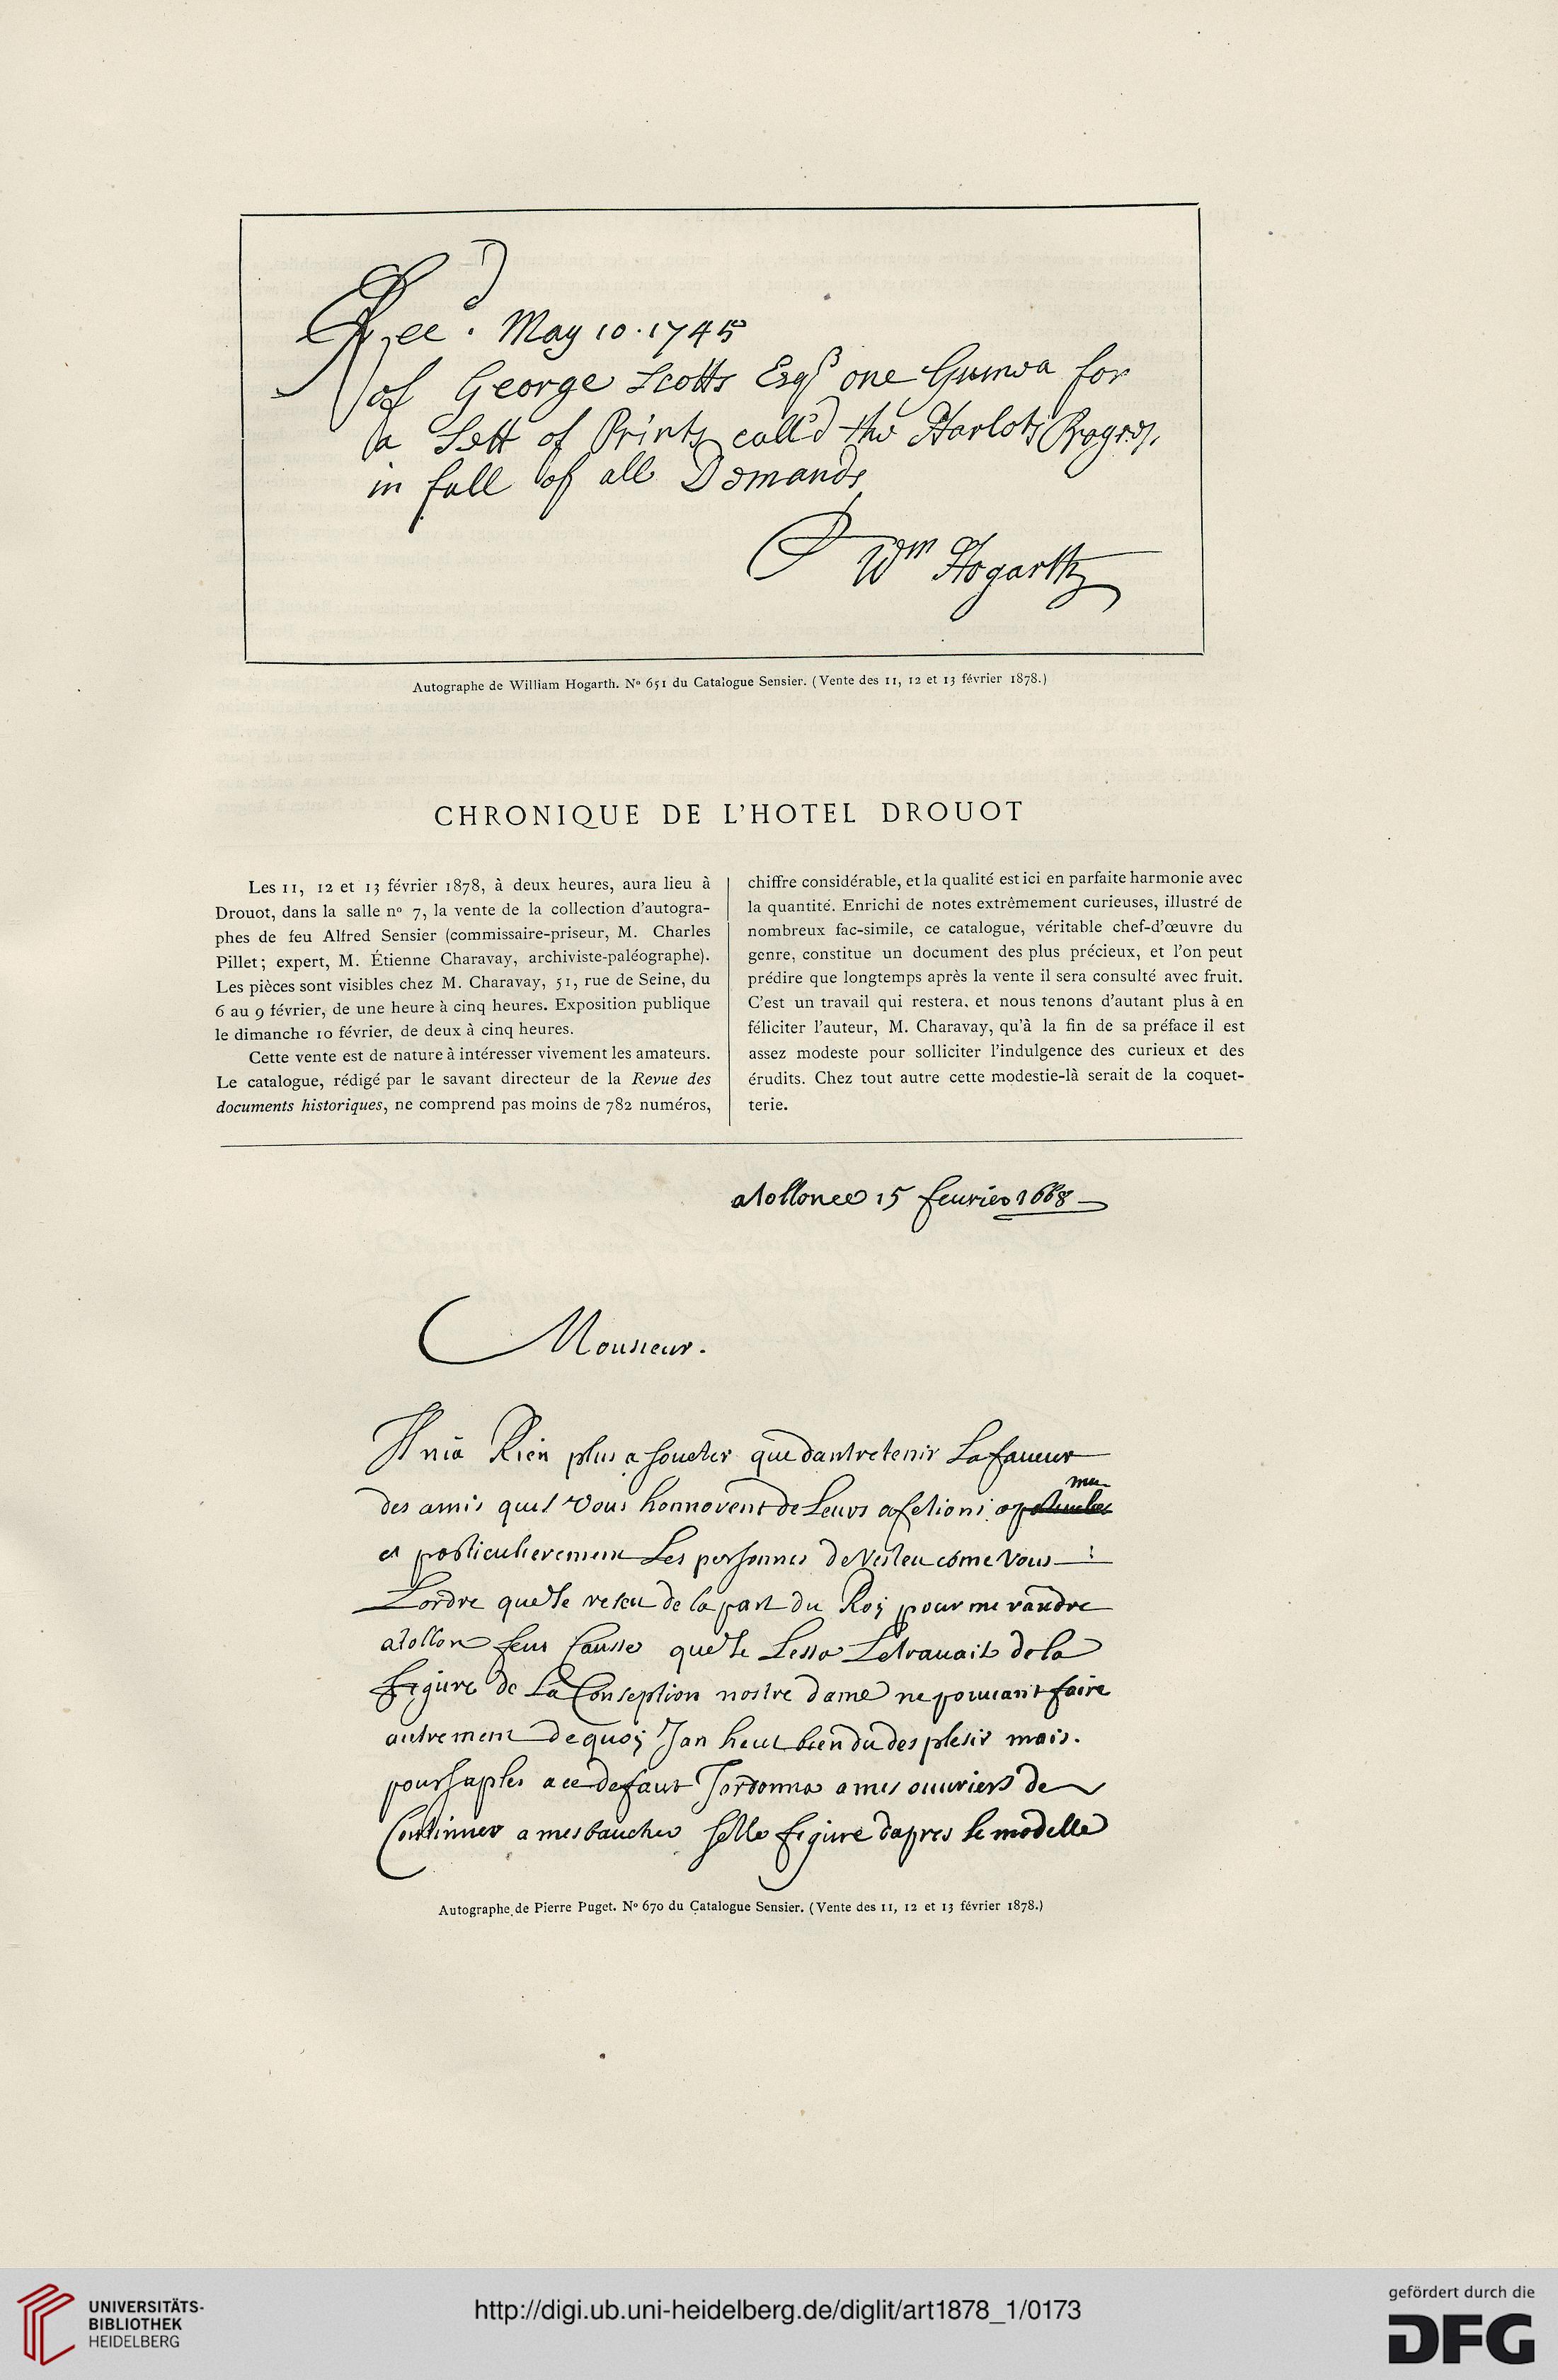 Rec.d May 10. 1745
of George Scotts Esqr one Guinea for
a Sett of Prints call'd the Harlots Progress,
in full of all Demands
Wm Hogarth
Autographe de William Hogarth. No 651 du Catalogue Sensier. (Vente des 11, 12 et 13 février 1878.)
CHRONIQUE DE L'HOTEL DROUOT
Les 11, 12 et 13 février 1878, à deux heures, aura lieu à
Drouot, dans la salle no 7, la vente de la collection d'autogra-
phes de feu Alfred Sensier (commissaire-priseur, M. Charles
Pillet; expert, M. Étienne Charavay, archiviste-paléographe).
Les pièces sont visibles chez M. Charavay, 51, rue de Seine, du
6 au 9 février, de une heure à cinq heures. Exposition publique
le dimanche 10 février, de deux à cinq heures.
Cette vente est de nature à intéresser vivement les amateurs.
Le catalogue, rédigé par le savant directeur de la Revue des
documents historiques, ne comprend pas moins de 782 numéros,
chiffre considérable, et la qualité est ici en parfaite harmonie avec
la quantité. Enrichi de notes extrêmement curieuses, illustré de
nombreux fac-simile, ce catalogue, véritable chef-d'œuvre du
genre, constitue un document des plus précieux, et l'on peut
prédire que longtemps après la vente il sera consulté avec fruit.
C'est un travail qui restera, et nous tenons d'autant plus à en
féliciter l'auteur, M. Charavay, qu'à la fin de sa préface il est
assez modeste pour solliciter l'indulgence des curieux et des
érudits. Chez tout autre cette modestie-là serait de la coquet-
terie.
atollonce 15 feurier 1668
Monsieur.
Il nia Rien plus a soueter que dantretenir La faueur
des amis quil vous honnorent de Leurs afetions
et particulierement Les personnes de come vous
Lordre que Je reseu de la part du Roy pour me randre
atollon feus Causse que Je Lessa Letrauail de la
figure de La Conseption nostre dame ne pouuant faire
autrement de quoy Jan heut bien du desplesir mais.
pour supler a ce defaut Jordonna a mes ouuriers de
Continuer a mesbaucher selle figure dapres le modelle
Autographe de Pierre Puget. No 670 du Catalogue Sensier. (Vente des 11, 12 et 13 février 1878.)
UNIVERSITÄTS-
BIBLIOTHEK
HEIDELBERG
http://digi.ub.uni-heidelberg.de/diglit/art1878_1/0173
gefördert durch die
DFG